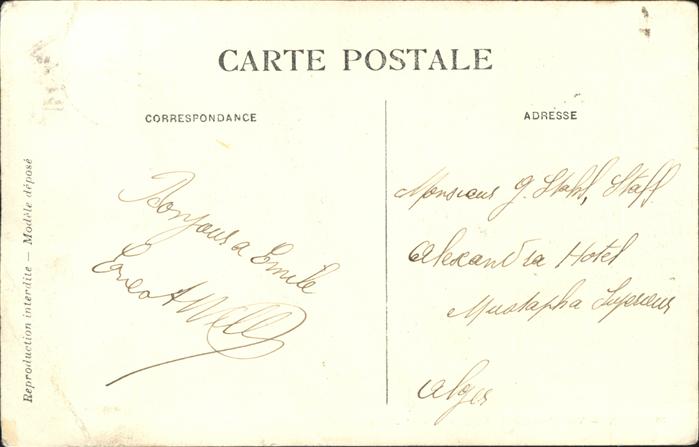 CARTE POSTALE
CORRESPONDANCE
ADRESSE
Reproduction interdite — Modèle déposé
Bonjour a Emile
Ernest
Monsieur G. Stahl, Staff
Alexandra Hotel
Mustapha Superieur
Alger